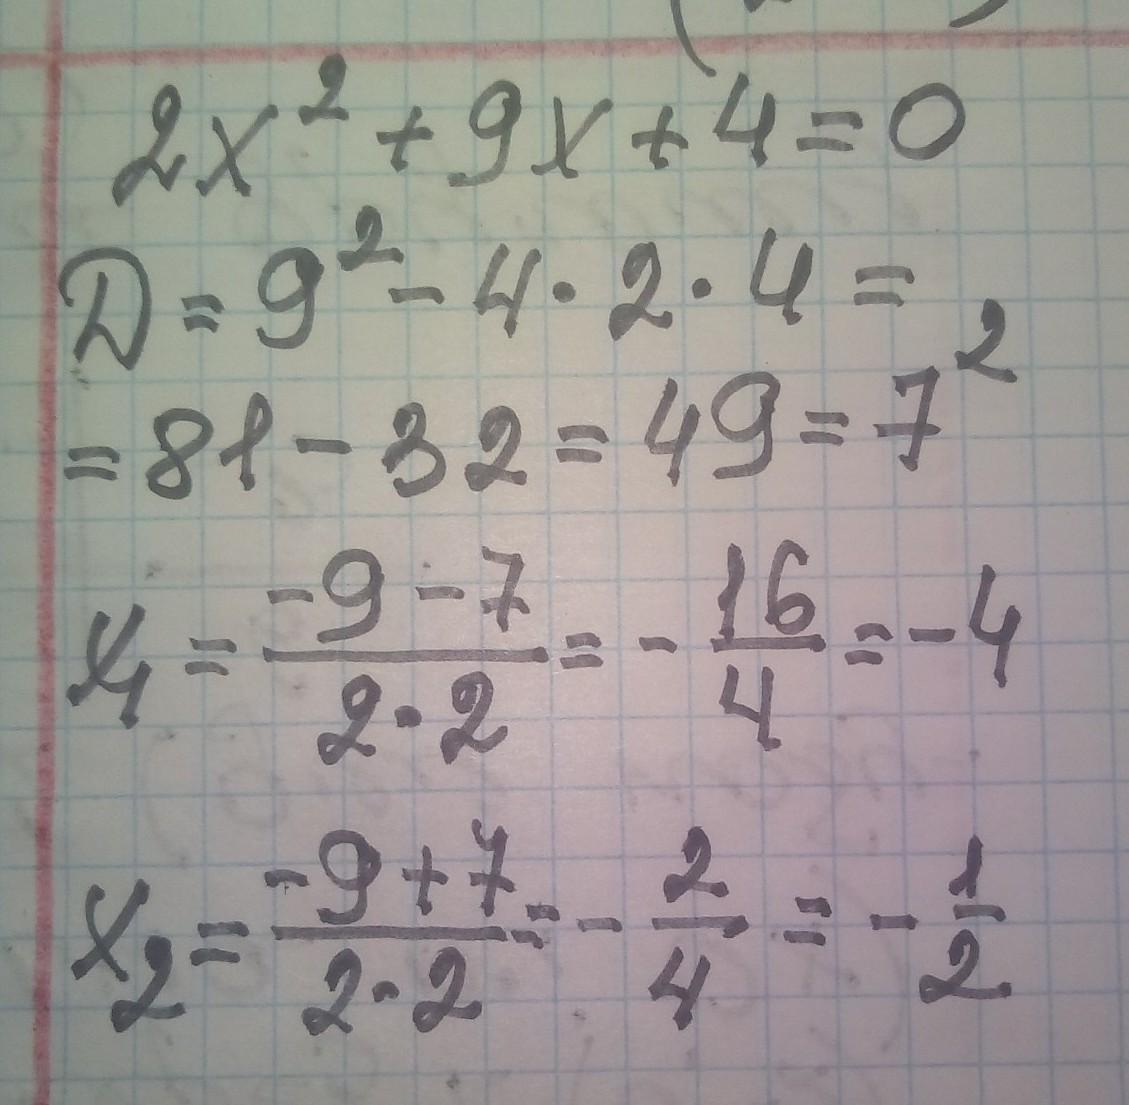 2x² + 9x + 4 = 0
D = 9² - 4 · 2 · 4 =
= 81 - 32 = 49 = 7²
x₁ = (-9 - 7)/(2 · 2) = - 16/4 = - 4
x₂ = (-9 + 7)/(2 · 2) = - 2/4 = - 1/2